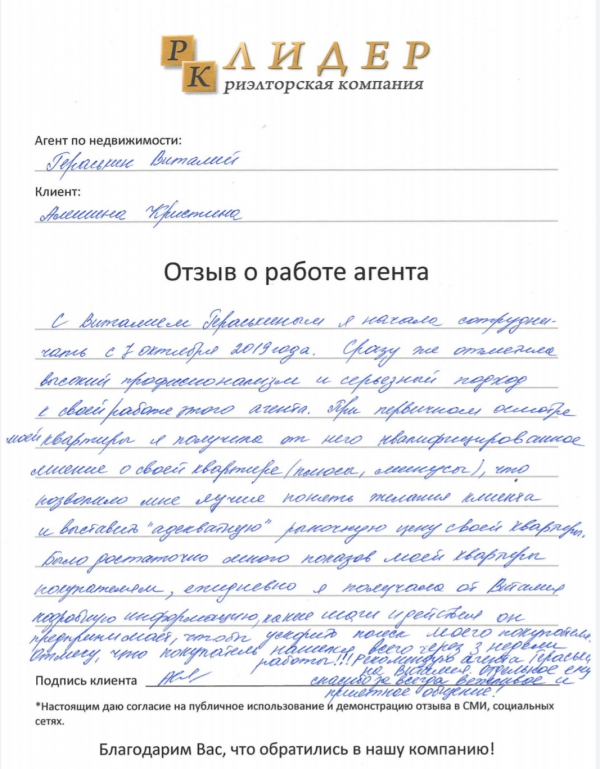 РК ЛИДЕР
риэлторская компания
Агент по недвижимости:
Гераськин Виталий
Клиент:
Алешина Кристина
Отзыв о работе агента
С Виталием Гераськиным я начала сотрудни-
чать с 7 октября 2019 года. Сразу же отметила
высокий професионализм и серьезный подход
к своей работе этого агента. При первичном осмотре
моей квартиры я получила от него квалифицированное
мнение о своей квартире (плюсы, минусы), что
позволило мне лучше понять желания клиента
и выставить "адекватную" рыночную цену своей квартиры.
Было достаточно много показов моей квартиры
покупателям, ежедневно я получала от Виталия
подробную информацию, какие шаги и действия он
предпринимает, чтобы ускорить поиск моего покупателя.
Отмечу, что покупатель нашелся всего через 3 недели
работы!!! Рекомендую агента Гераськи-
на Виталия, отдельное ему
спасибо за всегда вежливое и
приятное общение!
Подпись клиента
*Настоящим даю согласие на публичное использование и демонстрацию отзыва в СМИ, социальных
сетях.
Благодарим Вас, что обратились в нашу компанию!